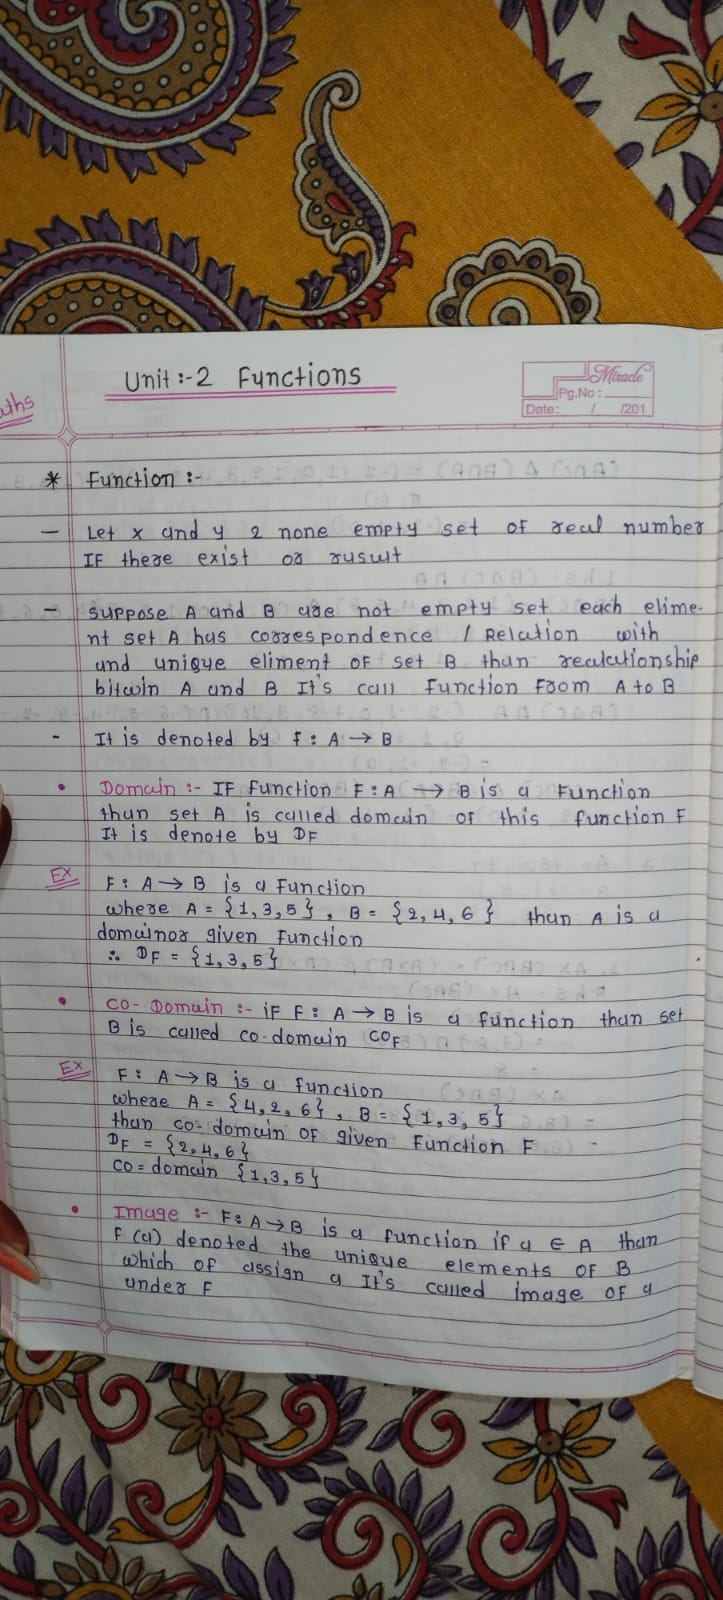 aths
Unit :- 2 Functions
Miracle
Pg.No :
Date: / /201
* Function :-
- Let x and y 2 none empty set of real number
IF there exist or
- suppose A and B are not empty set each elime-
nt set A has correspondence / Relation with
and unique eliment of set B than realationship
bitwin A and B It's call function From A to B
- It is denoted by f : A → B
• Domain :- IF function F : A → B is a Function
than set A is called domain of this function F
It is denote by DF
Ex F : A → B is a Function
where A = {1, 3, 5}, B = {2, 4, 6} than A is a
domainor given Function
∴ DF = {1, 3, 5}
• CO- Domain :- iF F : A → B is a function than set
B is called co-domain COF
Ex F : A → B is a function
where A = {4, 2, 6}, B = {1, 3, 5}
than co- domain of given Function F
DF = {2, 4, 6}
CO = domain {1, 3, 5}
• Image :- F : A → B is a function if a ∈ A than
F (a) denoted the unique elements OF B
which of assign a It's called image of a
under F